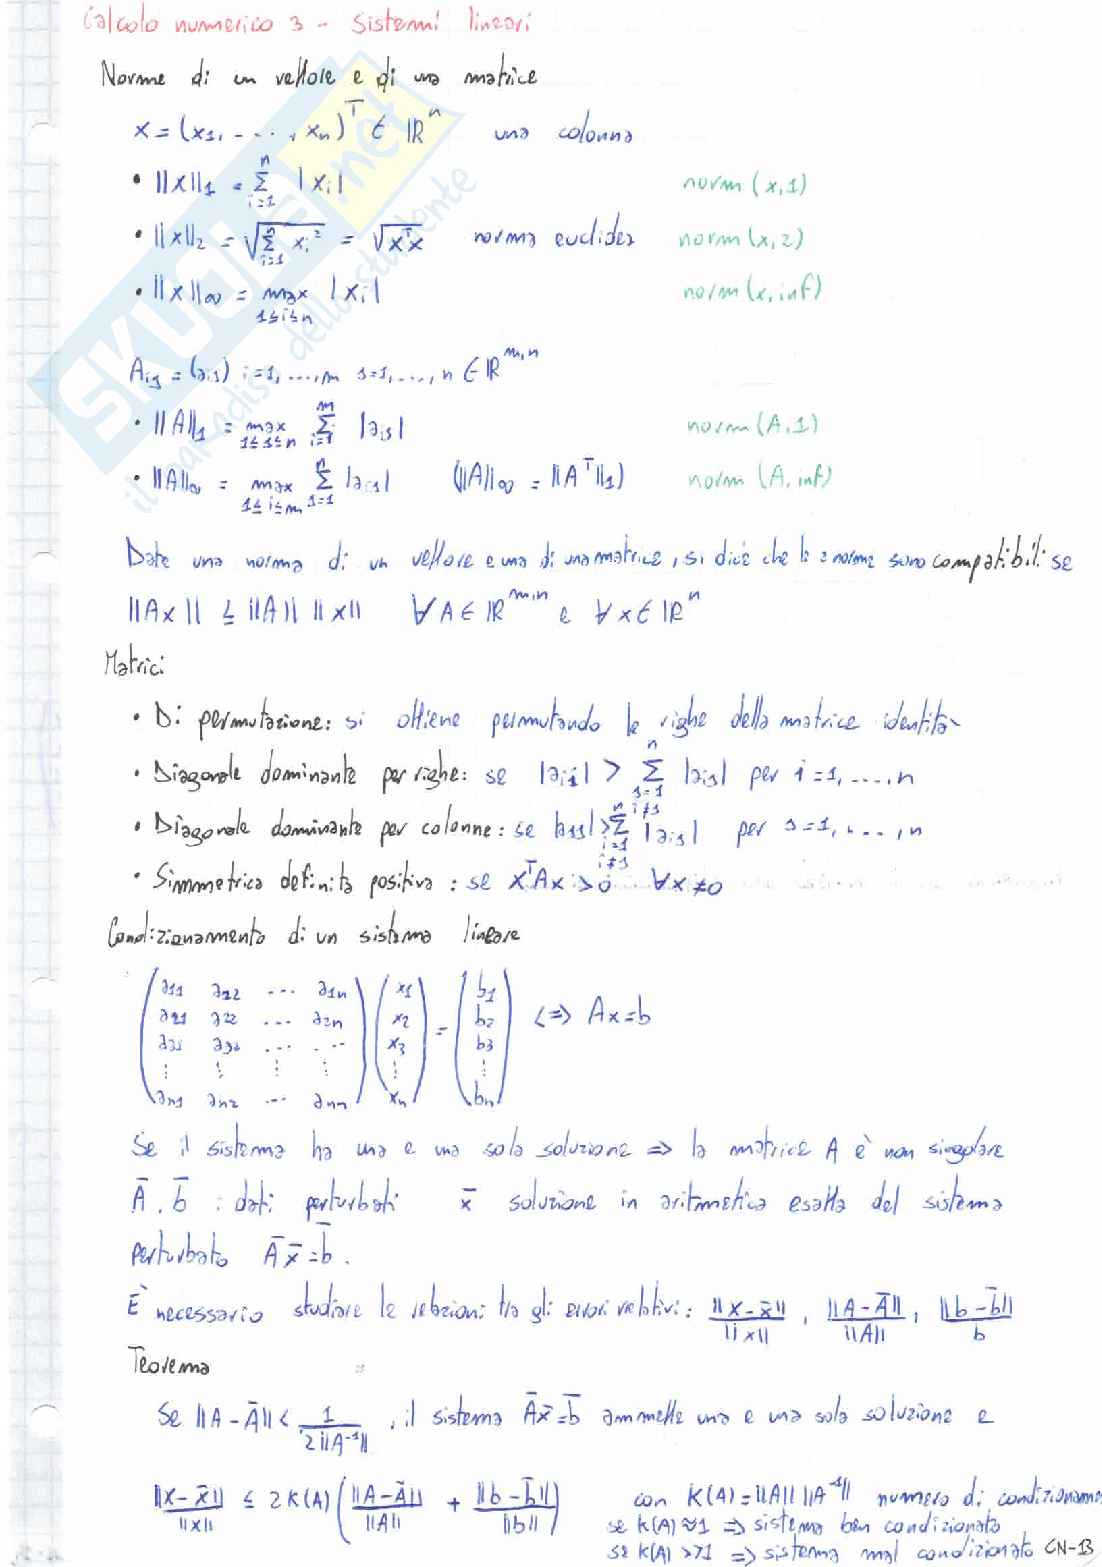 Calcolo numerico 3 - Sistemi lineari
Norme di un vettore e di una matrice
x = (x₁, ..., xₙ)ᵀ ∈ ℝⁿ una colonna
• ||x||₁ = Σᵢ₌₁ⁿ |xᵢ| norm(x,1)
• ||x||₂ = √(Σᵢ₌₁ⁿ xᵢ²) = √(xᵀx) norma euclidea norm(x,2)
• ||x||∞ = max 1≤i≤n |xᵢ| norm(x,inf)
Aᵢⱼ = (aᵢⱼ) i=1,....,m j=1,....,n ∈ ℝᵐ,ⁿ
• ||A||₁ = max 1≤j≤n Σᵢ₌₁ᵐ |aᵢⱼ| norm(A,1)
• ||A||∞ = max 1≤i≤m Σⱼ₌₁ⁿ |aᵢⱼ| (||A||∞ = ||Aᵀ||₁) norm(A,inf)
Date una norma di un vettore e una di una matrice, si dice che le 2 norme sono compatibili se
||Ax|| ≤ ||A|| ||x|| ∀A ∈ ℝᵐ,ⁿ e ∀x ∈ ℝⁿ
Matrici
• Di permutazione: si ottiene permutando le righe della matrice identità
• Diagonale dominante per righe: se |aᵢᵢ| > Σ j=1 j≠i n |aᵢⱼ| per i=1,....,n
• Diagonale dominante per colonne: se |aⱼⱼ| > Σ i=1 i≠j n |aᵢⱼ| per j=1,....,n
• Simmetrica definita positiva: se xᵀAx > 0 ∀x≠0
Condizionamento di un sistema lineare
a₁₁ a₂₂ ... a₁ₙ x₁ b₁
a₂₁ a₂₂ ... a₂ₙ x₂ = b₂ <=> Ax=b
a₃₁ a₃₂ ... ... x₃ b₃
⋮ ⋮ ⋮ ⋮ ⋮ ⋮
aₙ₁ aₙ₂ ... aₙₙ xₙ bₙ
Se il sistema ha una e una sola soluzione => la matrice A è non singolare
Ā, b̄ : dati perturbati x̄ soluzione in aritmetica esatta del sistema
perturbato Āx̄=b̄.
È necessario studiare le relazioni tra gli errori relativi: ||x-x̄||/||x|| , ||A-Ā||/||A|| , ||b-b̄||/b
Teorema
Se ||A-Ā|| < 1/(2||A⁻¹||) , il sistema Āx̄=b̄ ammette una e una sola soluzione e
||x-x̄||/||x|| ≤ 2K(A) (||A-Ā||/||A|| + ||b-b̄||/||b||) con K(A)=||A|| ||A⁻¹|| numero di condizioname
se K(A)≈1 => sistema ben condizionato
se K(A)>>1 => sistema mal condizionato CN-13
SKUOLA.net
il paradiso dello studente